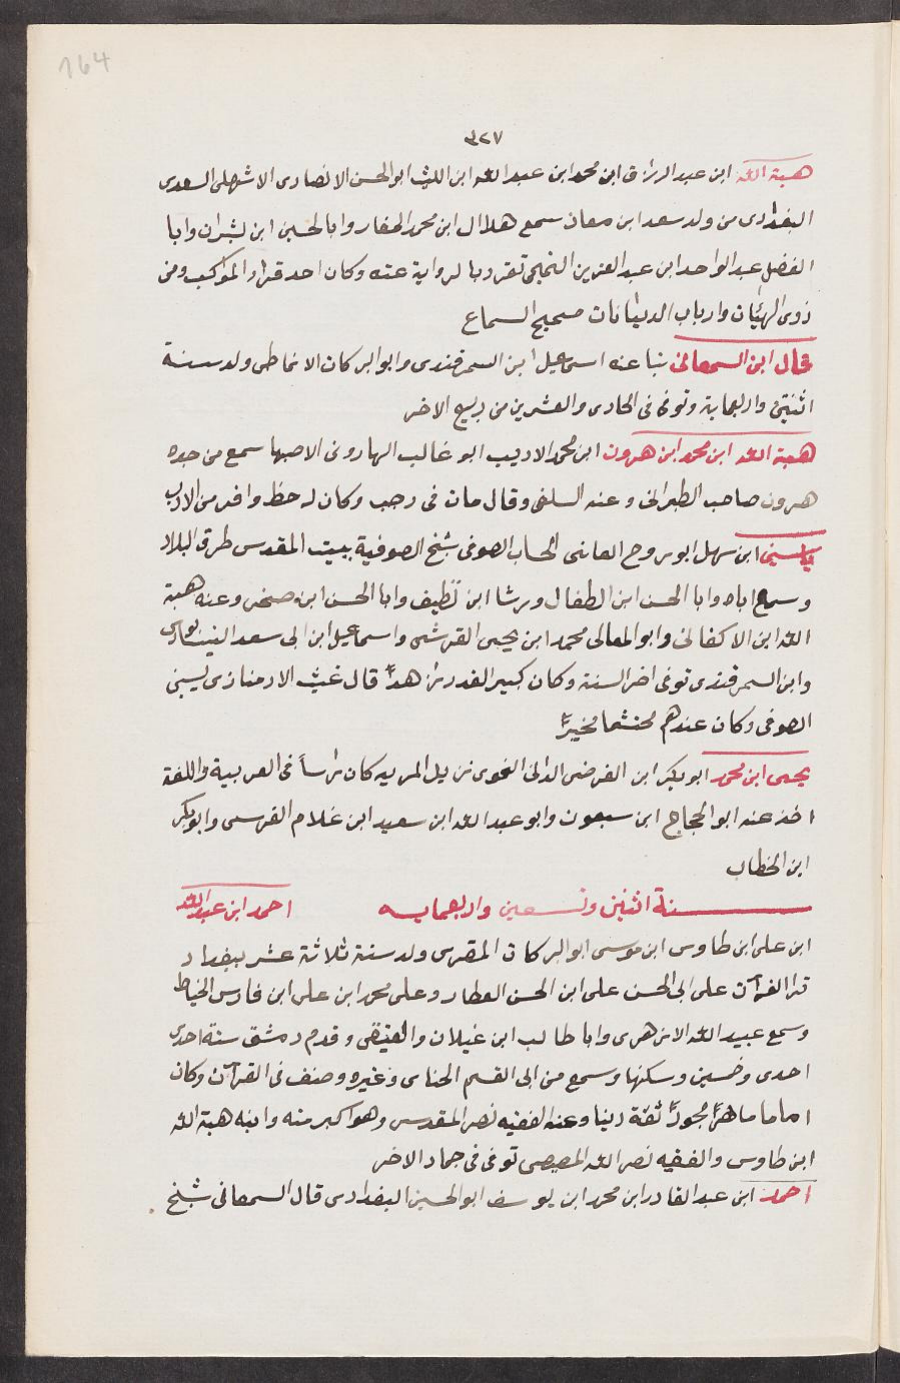 164
٣٢٧
هبة الله ابن عبد الرزاق ابن محمد ابن عبد الله ابن الليث ابو الحسن الانصارى الاشهلى السعدى
البغدادى من ولد سعد ابن معاذ سمع هلاال ابن محمد الحفار وابا لحسين ابن بشران وابا
الفضل عبد الواحد ابن عبد العزيز التميمى تفرد بالرواية عنه وكان احد قراء المواكب ومن
ذوى الهيئات وارباب الديانات صحيح السماع
قال ابن السمعانى نبا عنه اسماعيل ابن السمرقندى وابو البركات الانماطى ولد سنة
اثنتين واربعماية وتوفى فى الحادى والعشرين من ربيع الاخر
هبة الله ابن محمد ابن هرون ابن محمد الاديب ابو غالب الهارونى الاصبها سمع من جده
هرون صاحب الطبرانى وعنه السلفى وقال مات فى رجب وكان له حظ وافر من الادب
ياسين ابن سهل ابو روح القاينى الخشاب الصوفى شيخ الصوفية ببيت المقدس طرق البلاد
وسمع اباه وابا الحسن ابن الطفال ورشا ابن نظيف وابا الحسن ابن صخر وعنه هبة
الله ابن الاكفانى وابو المعالى محمد ابن يحيى القرشى واسماعيل ابن ابى سعد النيسابورى
وابن السمرقندى توفى اخر السنة وكان كبير القدر زاهدًا قال غيث الارمنازى يسين
الصوفى وكان عندهم محتشما مخيرًا
يحيى ابن محمد ابو بكر ابن الفرضى الدانى اللغوى نزيل المريه كان راسًا فى العربية واللغة
اخذ عنه ابو الحجاج ابن سبعون وابو عبد الله ابن سعيد ابن غلام الفرسى وابو بكر
ابن الخطاب
سنة اثنين وتسعين واربعمايه احمد ابن عبد الله
ابن على ابن طاوس ابن موسى ابو البركات المقرى ولد سنة ثلاثة عشر ببغداد
قرا القرآن على ابى الحسن على ابن الحسن العطار وعلى محمد ابن على ابن فارس الخياط
وسمع عبيد الله الازهرى وابا طالب ابن غيلان والعتيقى وقدم دمشق سنة احدى
احدى وخمسين وسكنها وسمع من ابى القسم الحناى وغيره وصنف فى القرآن وكان
اماما ماهرًا مجودًا ثقة دينا وعنه الفقيه نصر المقدسى وهو اكبر منه وابنه هبة الله
ابن طاوس والفقيه نصر الله المصيصى توفى فى جماد الاخر
احمد ابن عبد القادر ابن محمد ابن يوسف ابو الحسين البغدادى قال السمعانى شيخ